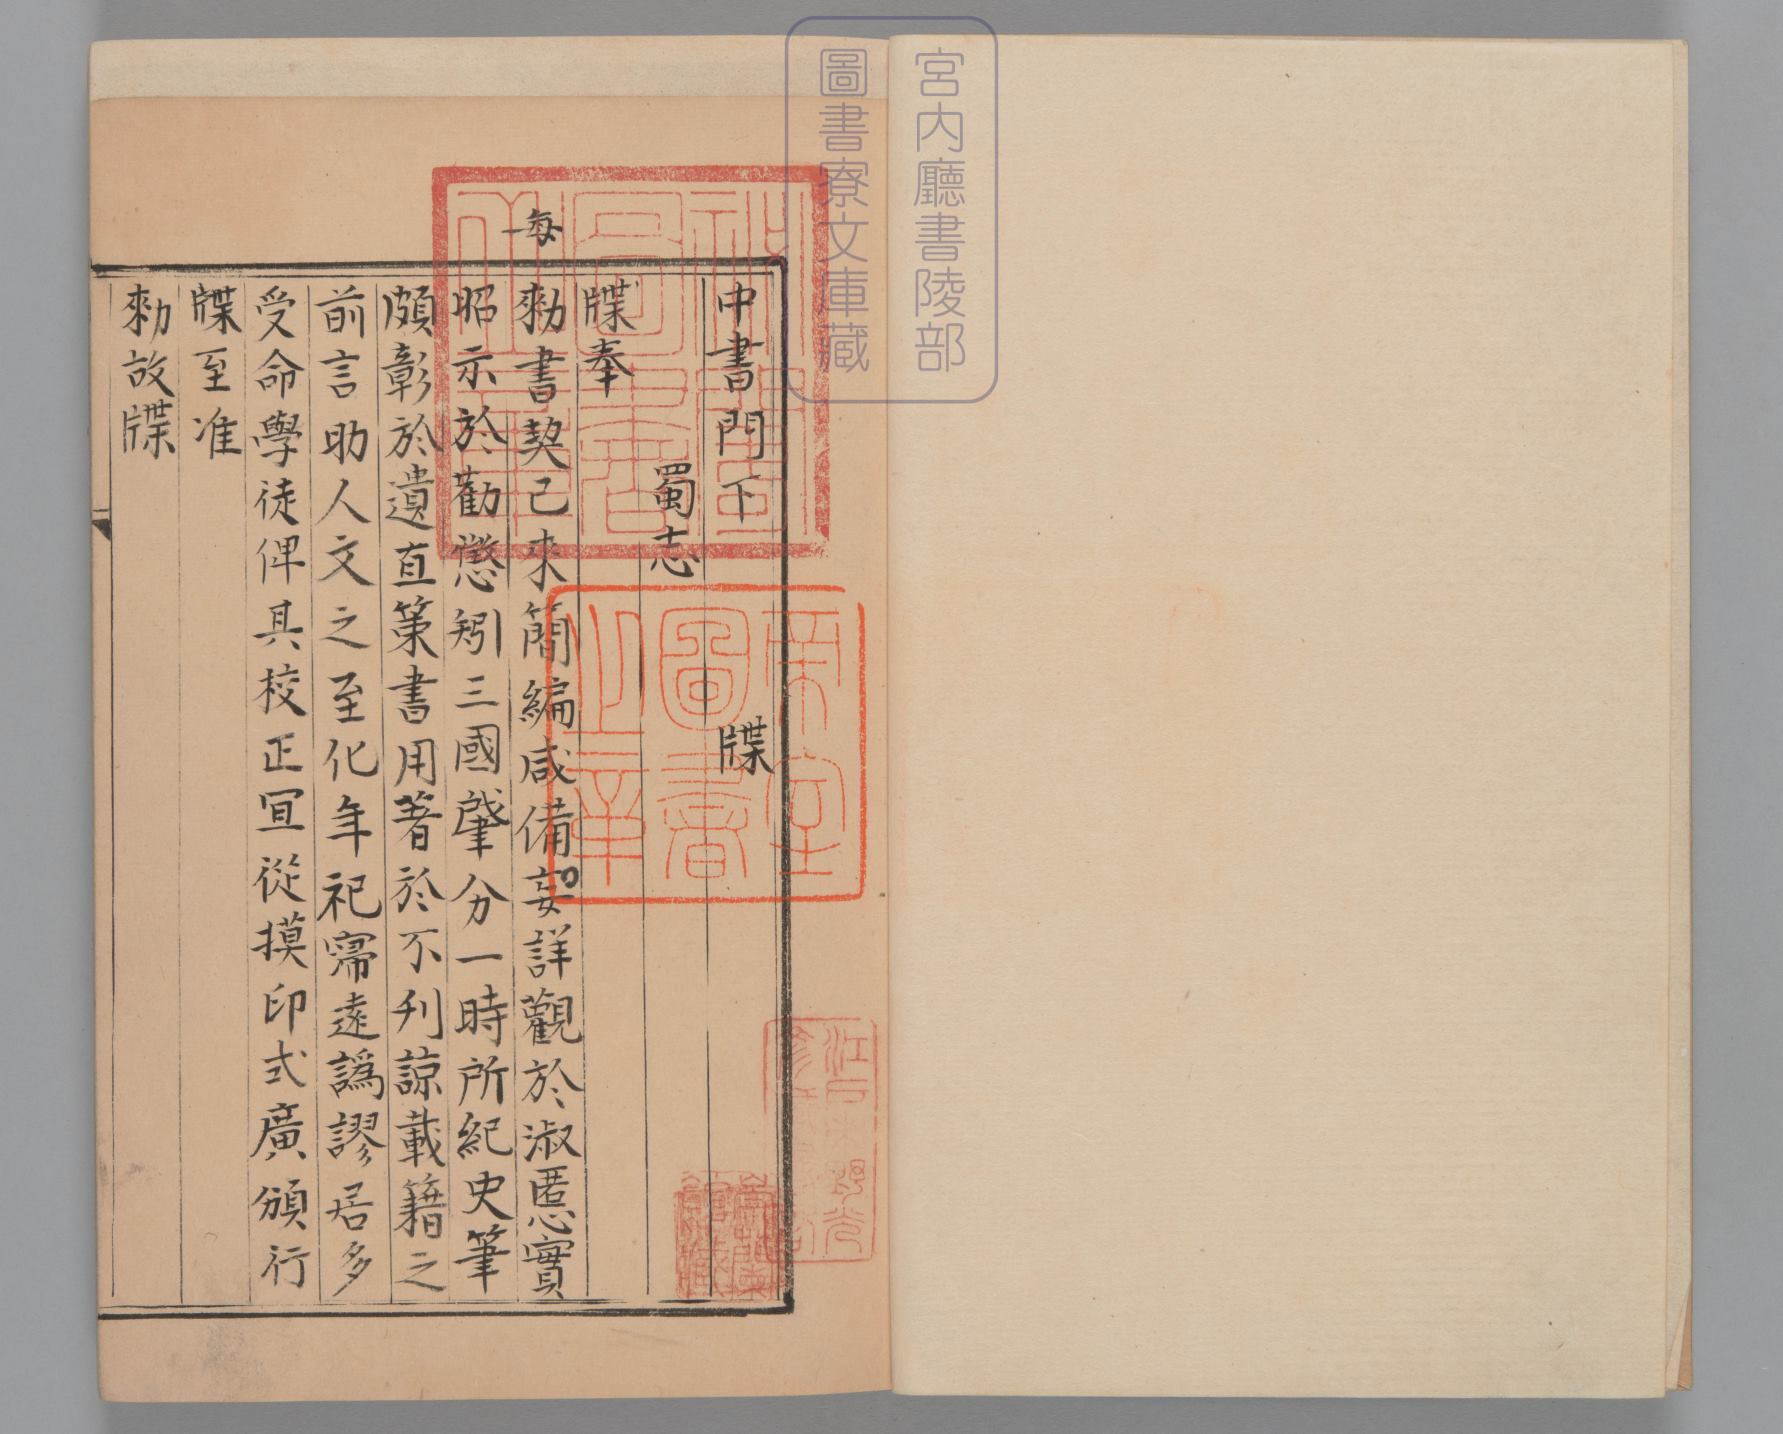 宮内廳書陵部
圖書寮文庫藏
中書門下　牒
蜀志
牒奉
勑書契已來簡編咸備妄詳觀於淑慝實
每
昭示於勸懲矧三國肈分一時所紀史筆
頗彰於遺直策書用著於不刋諒載籍之
前言助人文之至化年祀寖遠譌謬居多
受命學徒俾具校正冝從摸印式廣頒行
牒至准
勑故牒
帝室
圖書
之章